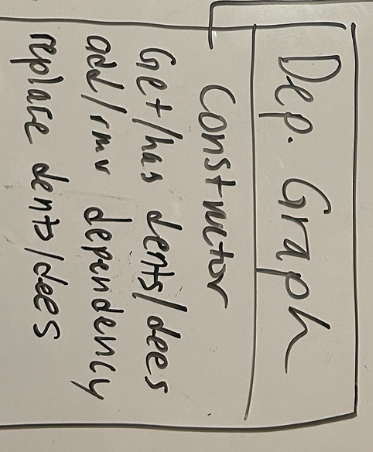 Dep. Graph
Constructor
Get/has dents/dees
add/rmv dependency
replace dents/dees